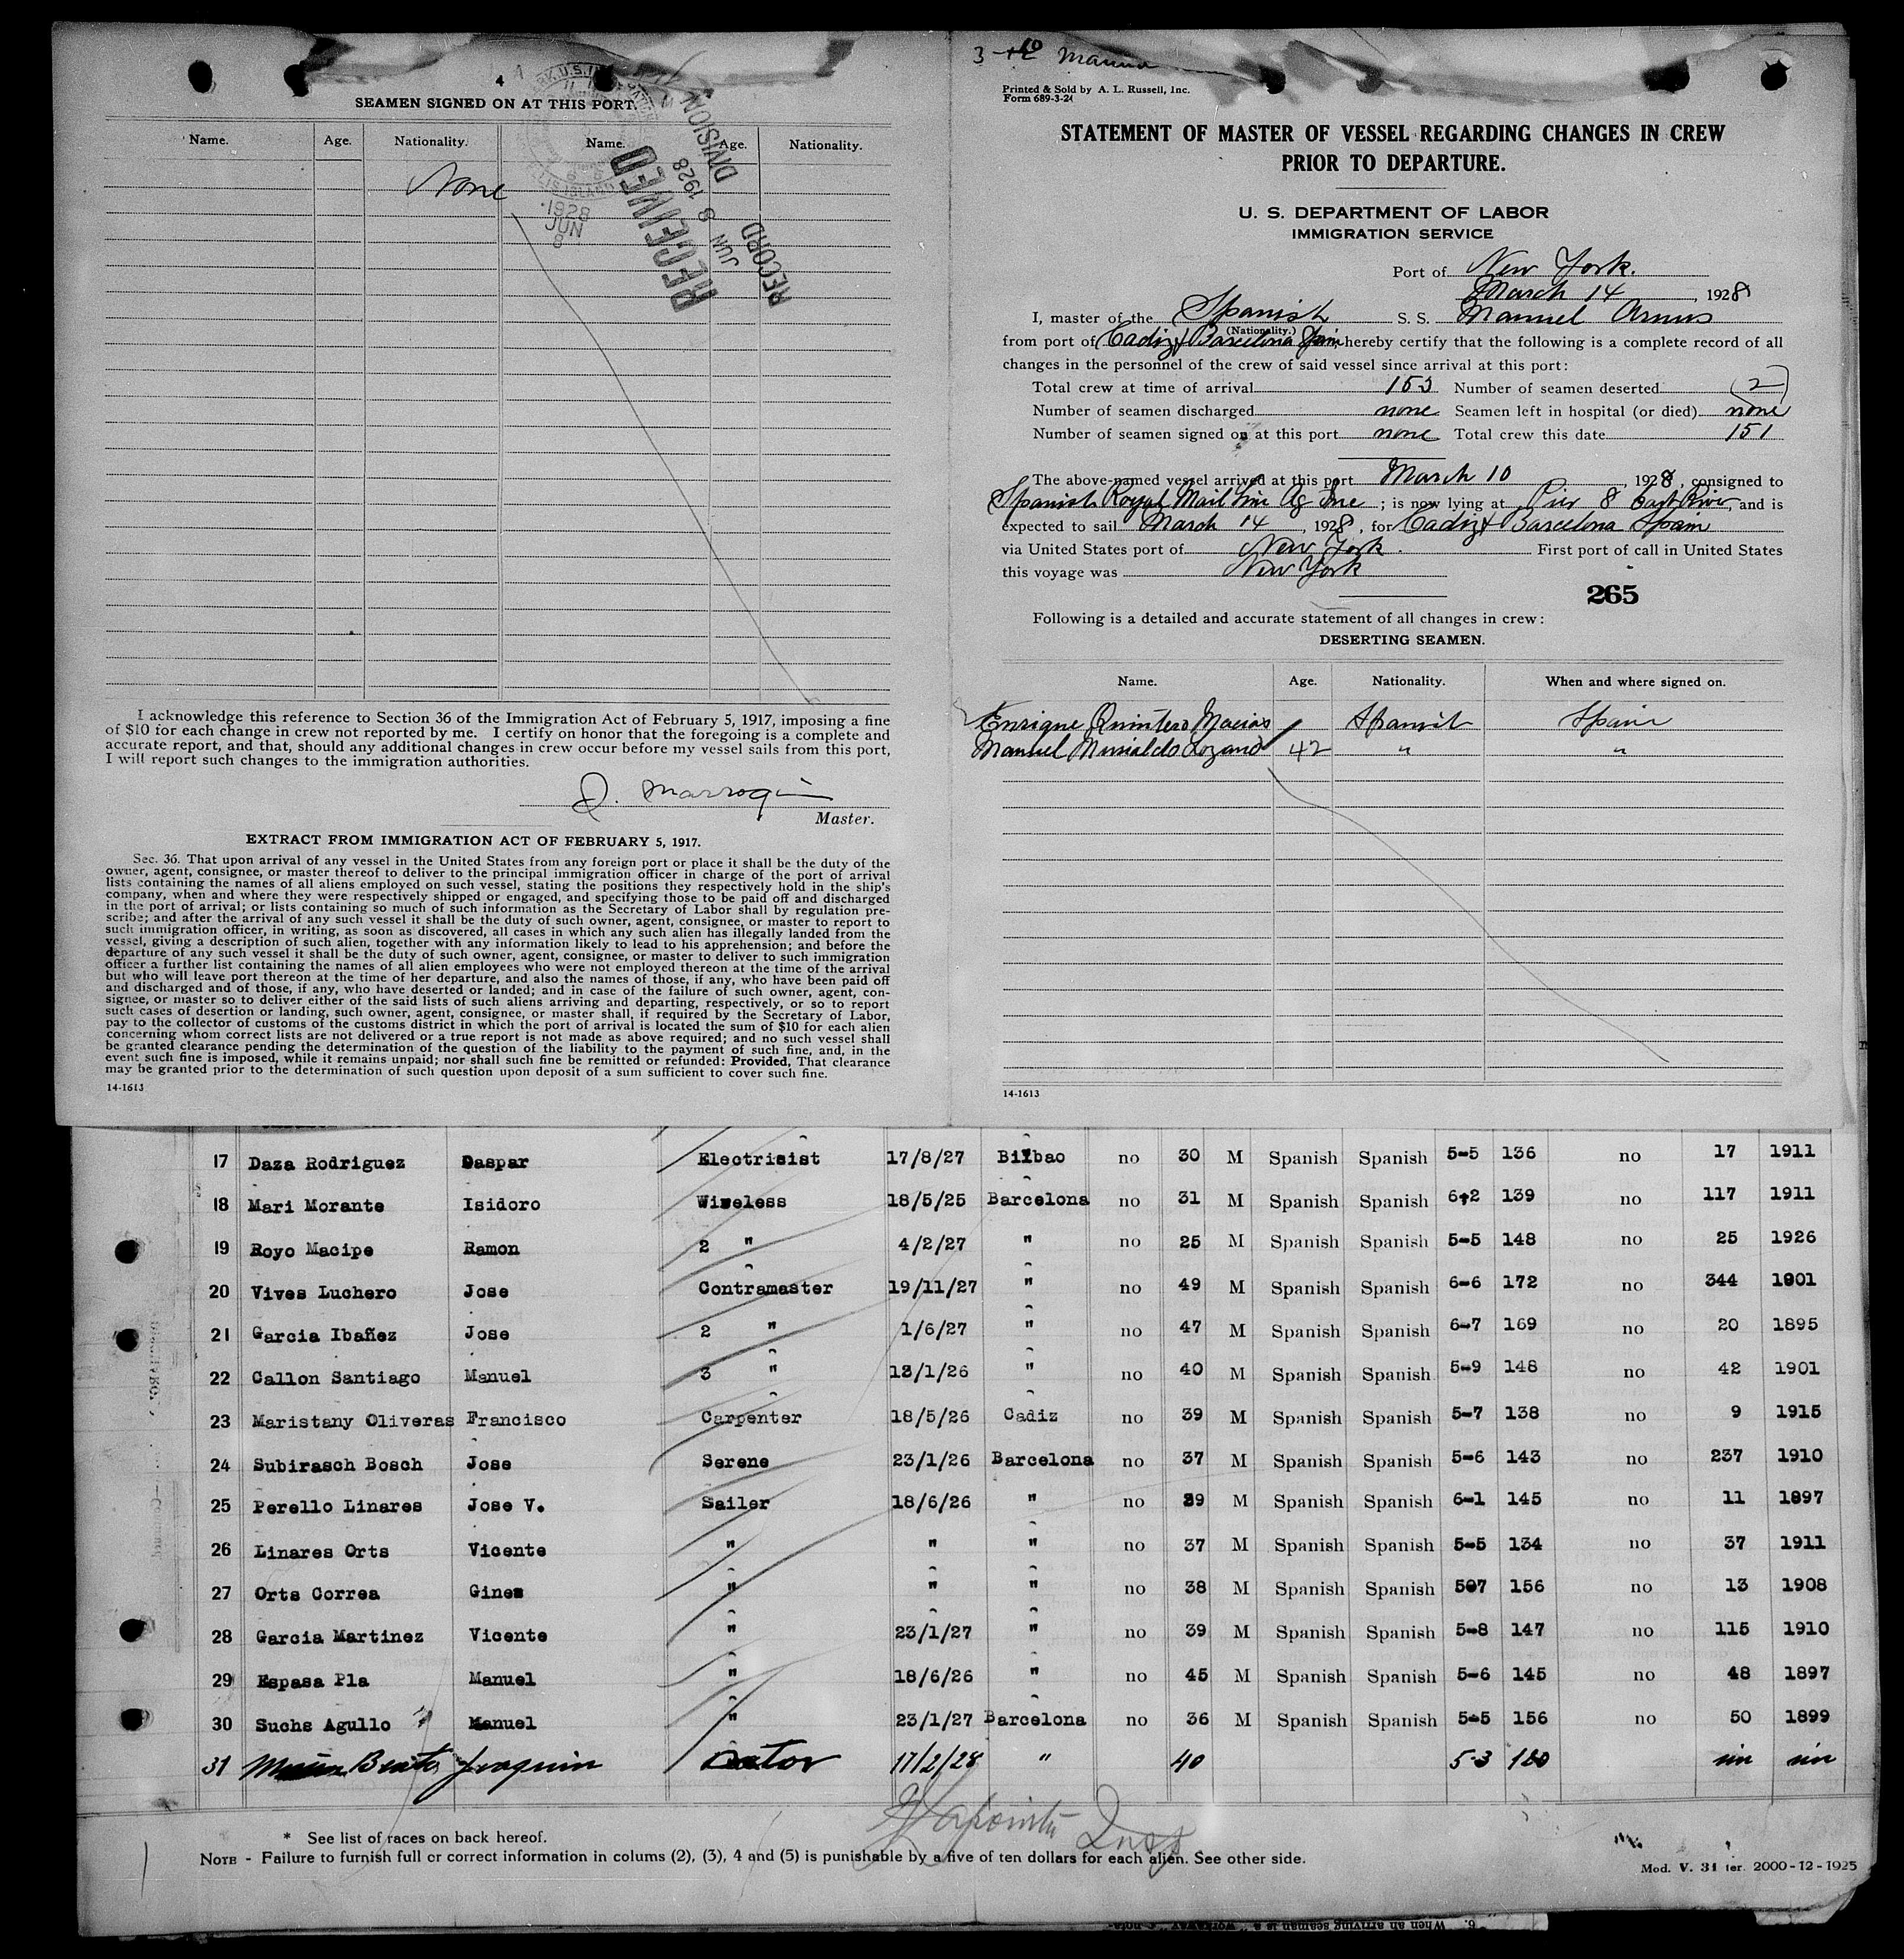 4
SEAMEN SIGNED ON AT THIS PORT.
Name. Age. Nationality. Name. Age. Nationality.
None
1928
JUN
8
RECEIVED
JUN 8 1928
RECORD DIVISION
I acknowledge this reference to Section 36 of the Immigration Act of February 5, 1917, imposing a fine
of $10 for each change in crew not reported by me. I certify on honor that the foregoing is a complete and
accurate report, and that, should any additional changes in crew occur before my vessel sails from this port,
I will report such changes to the immigration authorities.
Master.
EXTRACT FROM IMMIGRATION ACT OF FEBRUARY 5, 1917.
Sec. 36. That upon arrival of any vessel in the United States from any foreign port or place it shall be the duty of the
owner, agent, consignee, or master thereof to deliver to the principal immigration officer in charge of the port of arrival
lists containing the names of all aliens employed on such vessel, stating the positions they respectively hold in the ship's
company, when and where they were respectively shipped or engaged, and specifying those to be paid off and discharged
in the port of arrival; or lists containing so much of such information as the Secretary of Labor shall by regulation pre-
scribe; and after the arrival of any such vessel it shall be the duty of such owner, agent, consignee, or master to report to
such immigration officer, in writing, as soon as discovered, all cases in which any such alien has illegally landed from the
vessel, giving a description of such alien, together with any information likely to lead to his apprehension; and before the
departure of any such vessel it shall be the duty of such owner, agent, consignee, or master to deliver to such immigration
officer a further list containing the names of all alien employees who were not employed thereon at the time of the arrival
but who will leave port thereon at the time of her departure, and also the names of those, if any, who have been paid off
and discharged and of those, if any, who have deserted or landed; and in case of the failure of such owner, agent, con-
signee, or master so to deliver either of the said lists of such aliens arriving and departing, respectively, or so to report
such cases of desertion or landing, such owner, agent, consignee, or master shall, if required by the Secretary of Labor,
pay to the collector of customs of the customs district in which the port of arrival is located the sum of $10 for each alien
concerning whom correct lists are not delivered or a true report is not made as above required; and no such vessel shall
be granted clearance pending the determination of the question of the liability to the payment of such fine, and, in the
event such fine is imposed, while it remains unpaid; nor shall such fine be remitted or refunded: Provided, That clearance
may be granted prior to the determination of such question upon deposit of a sum sufficient to cover such fine.
14-1613
Printed & Sold by A. L. Russell, Inc.
Form 689-3-24
STATEMENT OF MASTER OF VESSEL REGARDING CHANGES IN CREW
PRIOR TO DEPARTURE.
U. S. DEPARTMENT OF LABOR
IMMIGRATION SERVICE
Port of New York.
March 14, 1928
I, master of the Spanish S. S. Manuel Arnus
(Nationality.)
from port of Cadiz & Barcelona Spain hereby certify that the following is a complete record of all
changes in the personnel of the crew of said vessel since arrival at this port:
Total crew at time of arrival 153 Number of seamen deserted 2
Number of seamen discharged none Seamen left in hospital (or died) none
Number of seamen signed on at this port none Total crew this date 151
The above-named vessel arrived at this port March 10, 1928, consigned to
Spanish Royal Mail Line Ag Inc; is now lying at Pier 8 East River, and is
expected to sail March 14, 1928, for Cadiz & Barcelona Spain
via United States port of New York. First port of call in United States
this voyage was New York
265
Following is a detailed and accurate statement of all changes in crew:
DESERTING SEAMEN.
Name. Age. Nationality. When and where signed on.
Enrique Quintero Macias Spanish Spain
Manuel Lozano 42 " "
14-1613
17 Daza Rodriguez Gaspar Electricist 17/8/27 Bilbao no 30 M Spanish Spanish 5-5 136 no 17 1911
18 Mari Morante Isidoro Wireless 18/5/25 Barcelona no 31 M Spanish Spanish 6-2 139 no 117 1911
19 Royo Macipe Ramon 2 " 4/2/27 " no 25 M Spanish Spanish 5-5 148 no 25 1926
20 Vives Luchero Jose Contramaster 19/11/27 " no 49 M Spanish Spanish 6-6 172 no 344 1901
21 Garcia Ibañez Jose 2 " 1/6/27 " no 47 M Spanish Spanish 6-7 169 no 20 1895
22 Callon Santiago Manuel 3 " 13/1/26 " no 40 M Spanish Spanish 5-9 148 no 42 1901
23 Maristany Oliveras Francisco Carpenter 18/5/26 Cadiz no 39 M Spanish Spanish 5-7 138 no 9 1915
24 Subirasch Bosch Jose Serene 23/1/26 Barcelona no 37 M Spanish Spanish 5-6 143 no 237 1910
25 Perello Linares Jose V. Sailer 18/6/26 " no 39 M Spanish Spanish 6-1 145 no 11 1897
26 Linares Orts Vicente " " " no 37 M Spanish Spanish 5-5 134 no 37 1911
27 Orts Correa Gines " " " no 38 M Spanish Spanish 507 156 no 13 1908
28 Garcia Martinez Vicente " 23/1/27 " no 39 M Spanish Spanish 5-8 147 no 115 1910
29 Espasa Pla Manuel " 18/6/26 " no 45 M Spanish Spanish 5-6 145 no 48 1897
30 Suchs Agullo Manuel " 23/1/27 Barcelona no 36 M Spanish Spanish 5-5 156 no 50 1899
31 Joaquin 17/2/28 " 40 5-3 120 sin sin
* See list of races on back hereof.
NOTE - Failure to furnish full or correct information in colums (2), (3), 4 and (5) is punishable by a five of ten dollars for each alien. See other side.
Mod. V. 31 ter. 2000-12-1925